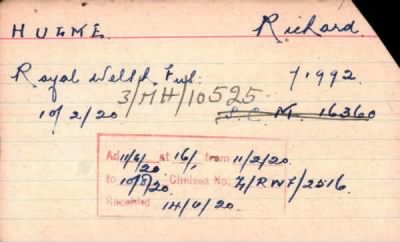 HULME. Richard.
Royal Welsh Fus. 71992.
3/MH/10525.
10/2/20 S.C.M. 16360
Ad 11/6/20 at 16/- from 11/2/20.
to 10/8/20. Chelsea No. 7/RWF/2516.
Received 14/4/20.